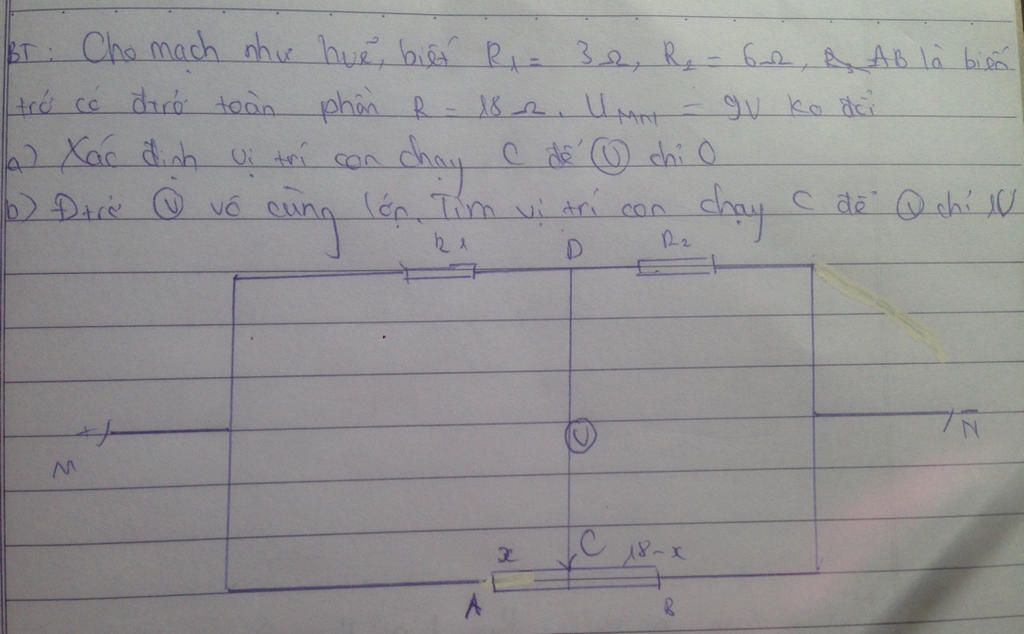 BT: Cho mạch như huề, biết R1 = 3Ω, R2 = 6Ω, R3 AB là biến
trở có đtrở toàn phần R = 18Ω. UMN = 9V ko đổi
a) Xác định vị trí con chạy C để Ⓥ chỉ 0
b) Đtrở Ⓥ vô cùng lớn. Tìm vị trí con chạy C để Ⓥ chỉ 1V
R1 D R2
+ -
M N
V
x C 18-x
A B